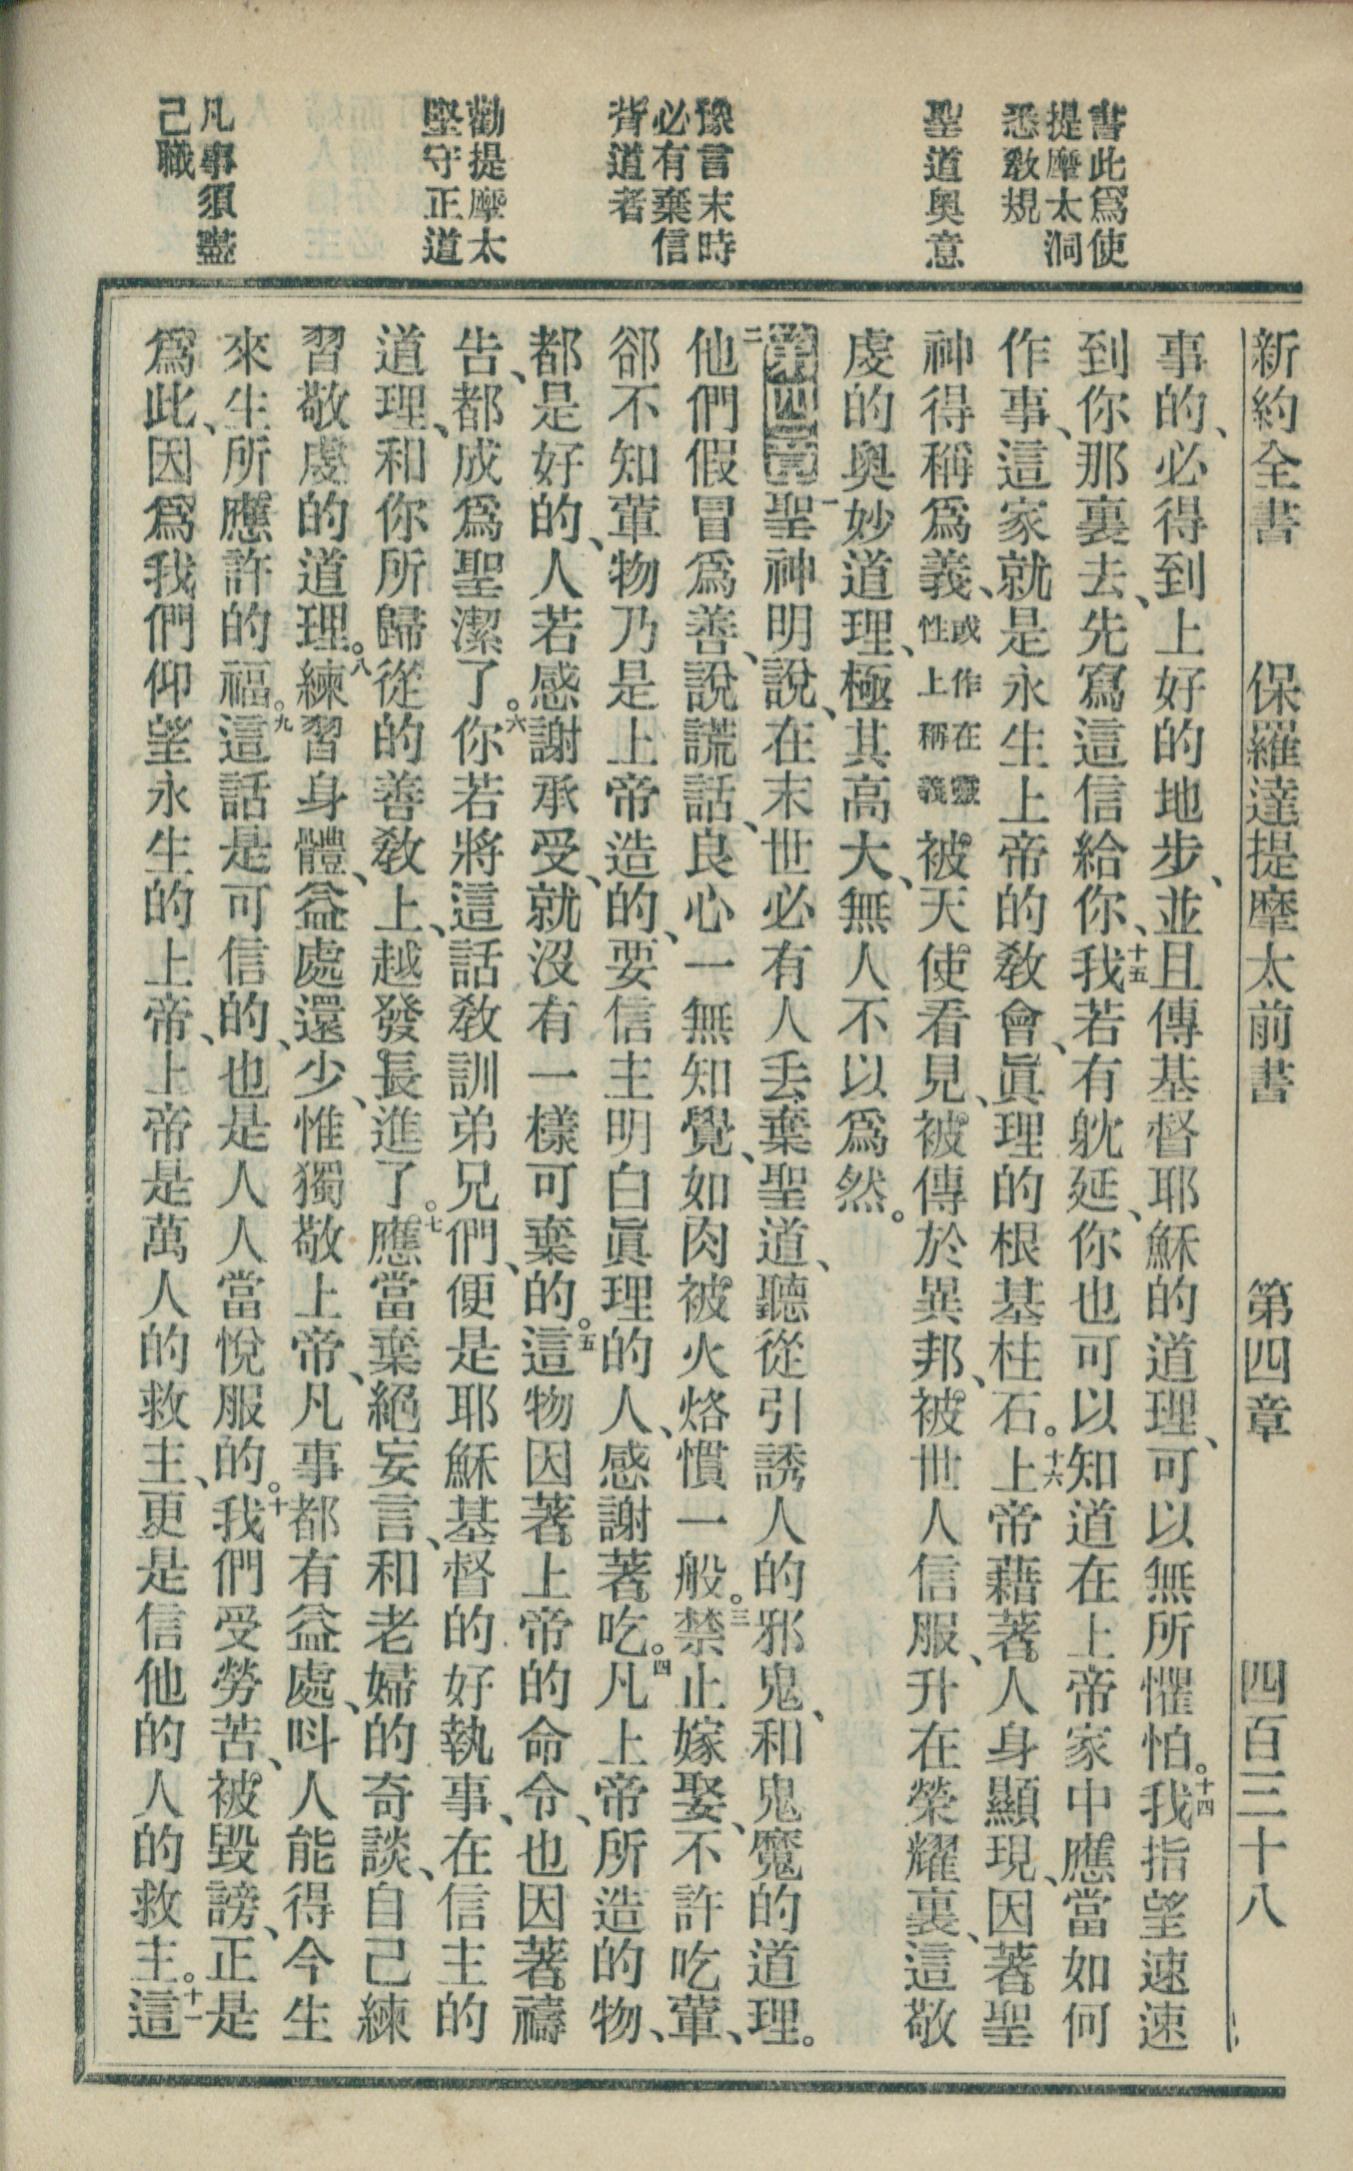 書此爲使
提摩太洞
悉敎規
聖道奧意
豫言末時
必有棄信
背道者
勸提摩太
堅守正道
凡事須盡
己職
新約全書 保羅達提摩太前書 第四章 四百三十八
事的、必得到上好的地步、並且傳基督耶穌的道理、可以無所懼怕。十四我指望速速
到你那裏去、先寫這信給你、十五我若有躭延、你也可以知道在上帝家中應當如何
作事、這家就是永生上帝的敎會、眞理的根基柱石。十六上帝藉著人身顯現、因著聖
神得稱爲義、或作在靈性上稱義被天使看見、被傳於異邦、被世人信服、升在榮耀裏、這敬
虔的奧妙道理、極其高大、無人不以爲然。
第四章一聖神明說、在末世必有人丢棄聖道、聽從引誘人的邪鬼、和鬼魔的道理。
二他們假冒爲善、說謊話、良心一無知覺、如肉被火烙慣一般。三禁止嫁娶、不許吃葷、
郤不知葷物乃是上帝造的、要信主明白眞理的人、感謝著吃。四凡上帝所造的物、
都是好的、人若感謝承受、就沒有一樣可棄的。五這物因著上帝的命令、也因著禱
告、都成爲聖潔了。六你若將這話敎訓弟兄們、便是耶穌基督的好執事、在信主的
道理、和你所歸從的善敎上、越發長進了。七應當棄絕妄言、和老婦的奇談、自己練
習敬虔的道理。八練習身體、益處還少、惟獨敬上帝、凡事都有益處、呌人能得今生
來生所應許的福。九這話是可信的、也是人人當悅服的。十我們受勞苦、被毀謗、正是
爲此、因爲我們仰望永生的上帝、上帝是萬人的救主、更是信他的人的救主。十一這